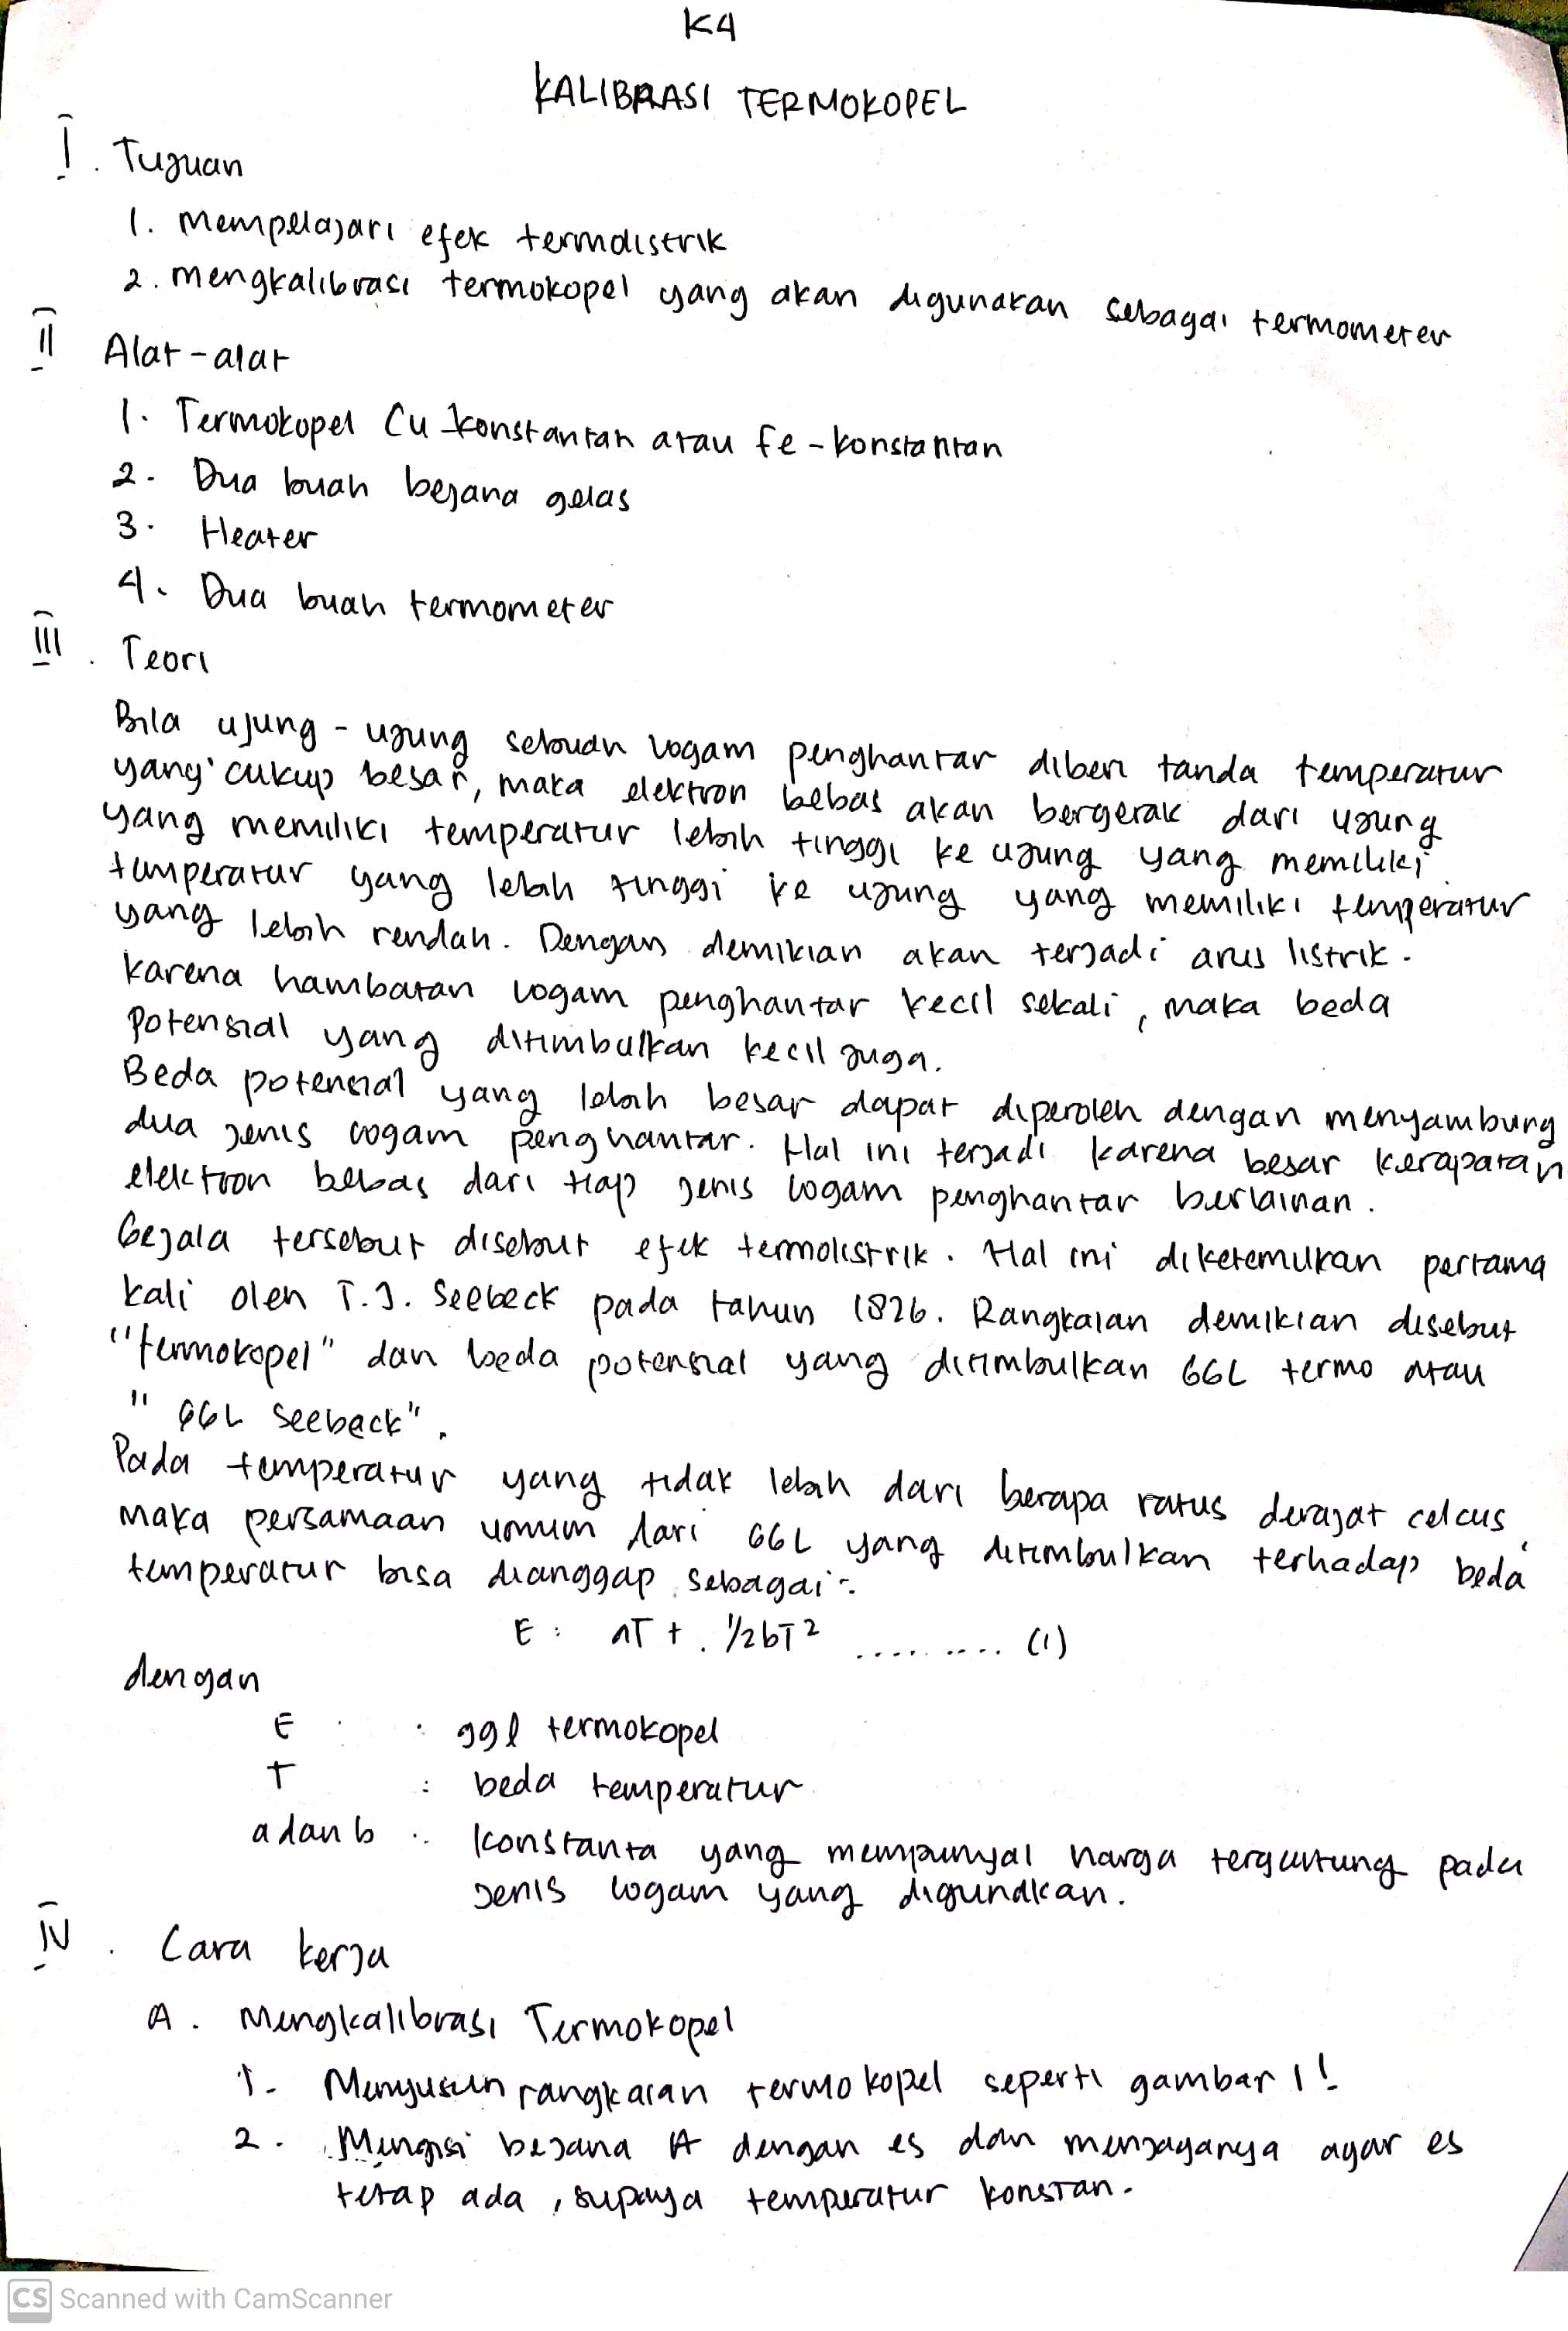 K4
KALIBRASI TERMOKOPEL
I. Tujuan
1. Mempelajari efek termolistrik
2. mengkalibrasi termokopel yang akan digunakan sebagai termometer
II Alat-alat
1. Termokopel Cu konstantan atau fe-konstantan
2. Dua buah bejana gelas
3. Heater
4. Dua buah termometer
III. Teori
Bila ujung-ujung sebuah logam penghantar diberi tanda temperatur
yang cukup besar, maka elektron bebas akan bergerak dari ujung
yang memiliki temperatur lebih tinggi ke ujung yang memiliki
temperatur yang lebih tinggi ke ujung yang memiliki temperatur
yang lebih rendah. Dengan demikian akan terjadi arus listrik.
karena hambatan logam penghantar kecil sekali, maka beda
potensial yang ditimbulkan kecil juga.
Beda potensial yang lebih besar dapat diperoleh dengan menyambung
dua jenis logam penghantar. Hal ini terjadi karena besar kerapatan
elektron bebas dari tiap jenis logam penghantar berlainan.
Gejala tersebut disebut efek termolistrik. Hal ini diketemukan pertama
kali oleh T.J. Seebeck pada tahun 1826. Rangkaian demikian disebut
"termokopel" dan beda potensial yang ditimbulkan GGL termo atau
"GGL Seeback".
Pada temperatur yang tidak lebih dari berapa ratus derajat celcus,
maka persamaan umum dari GGL yang ditimbulkan terhadap beda
temperatur bisa dianggap sebagai:
E : aT + 1/2bT² ......... (1)
dengan
E : ggl termokopel
T : beda temperatur
a dan b : konstanta yang mempunyai harga tergantung pada
jenis logam yang digunakan.
IV. Cara kerja
A. Mengkalibrasi Termokopel
1. Menyusun rangkaian termokopel seperti gambar 1!
2. Mengisi bejana A dengan es dan menjaganya agar es
tetap ada, supaya temperatur konstan.
CS Scanned with CamScanner